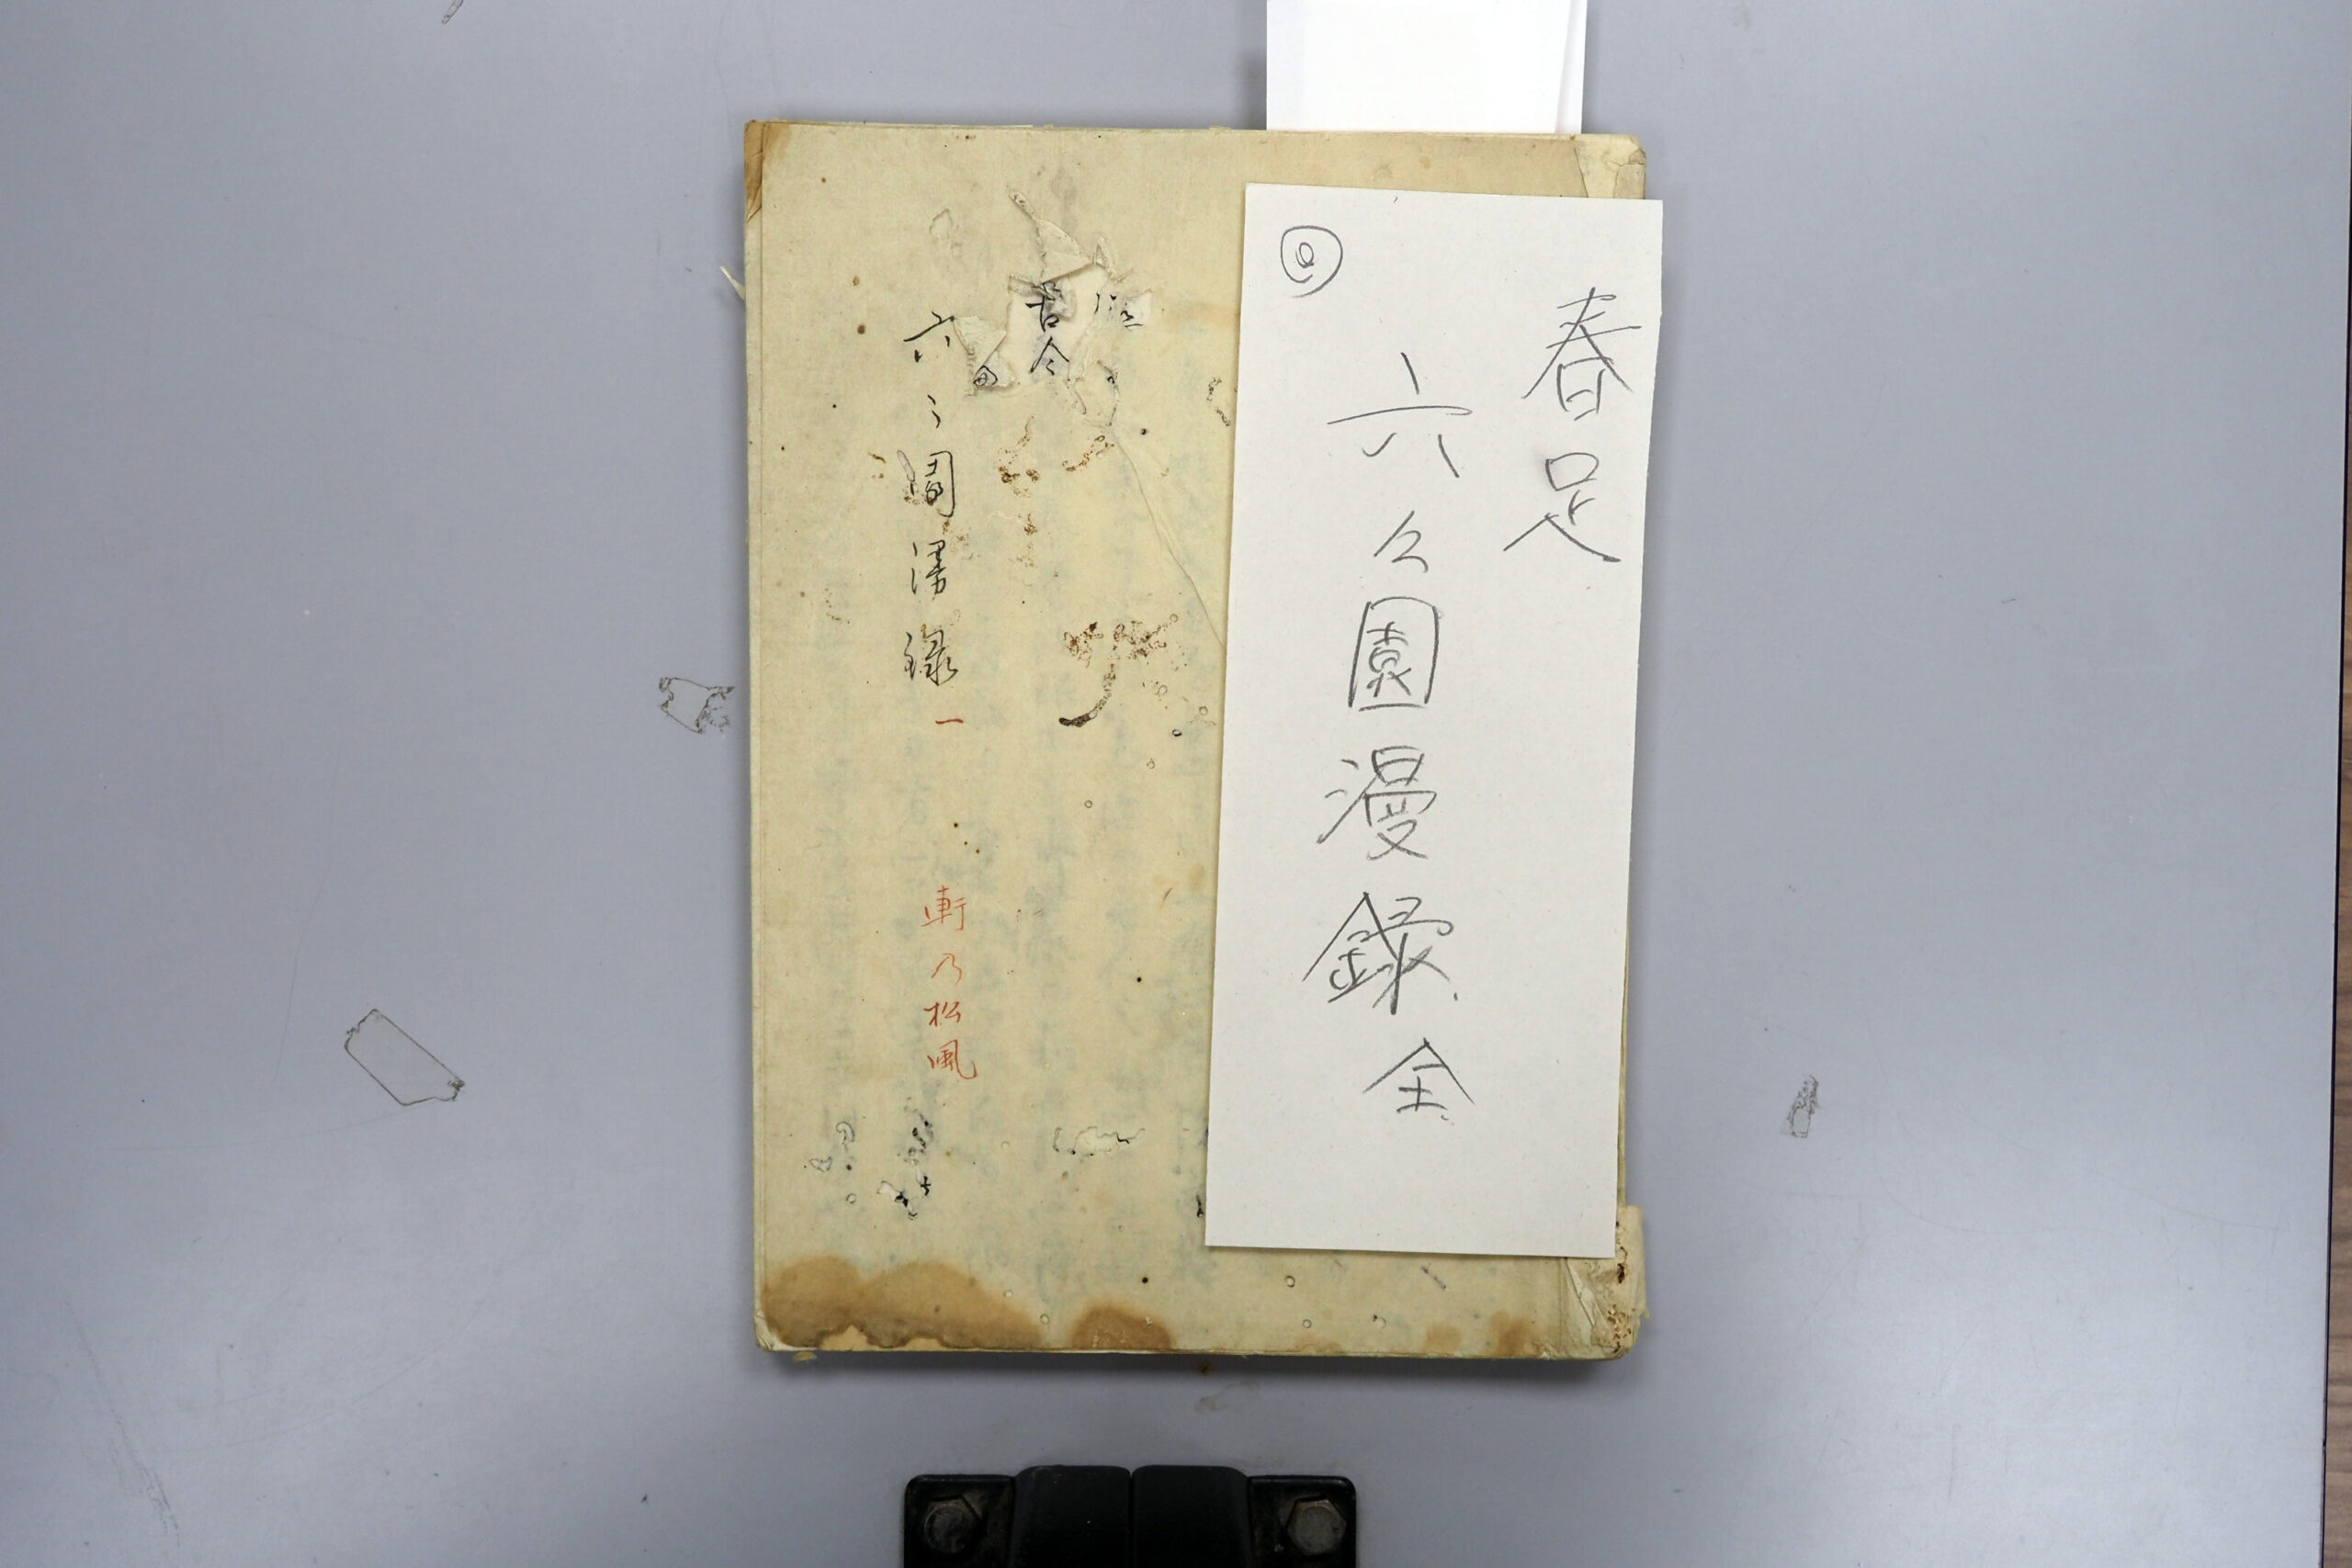 春足
六々園漫録全
古今
六々園漫録 一 軒乃松風